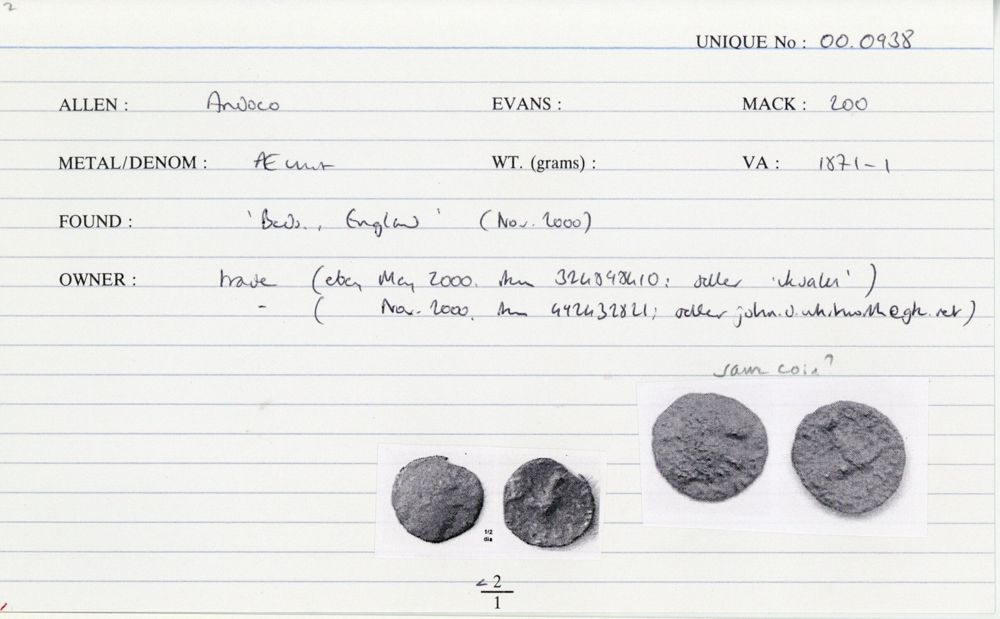 2
UNIQUE No : 00.0938
ALLEN : Andoco EVANS : MACK : 200
METAL/DENOM : Æ unit WT. (grams) : VA : 1871-1
FOUND : 'Beds., England' (Nov. 2000)
OWNER : trade (ebay May 2000. item 324848410; seller )
- ( Nov. 2000. item 492432821; seller john.d.whitworth@gk.net)
same coin?
1/2
dia
< 2
1